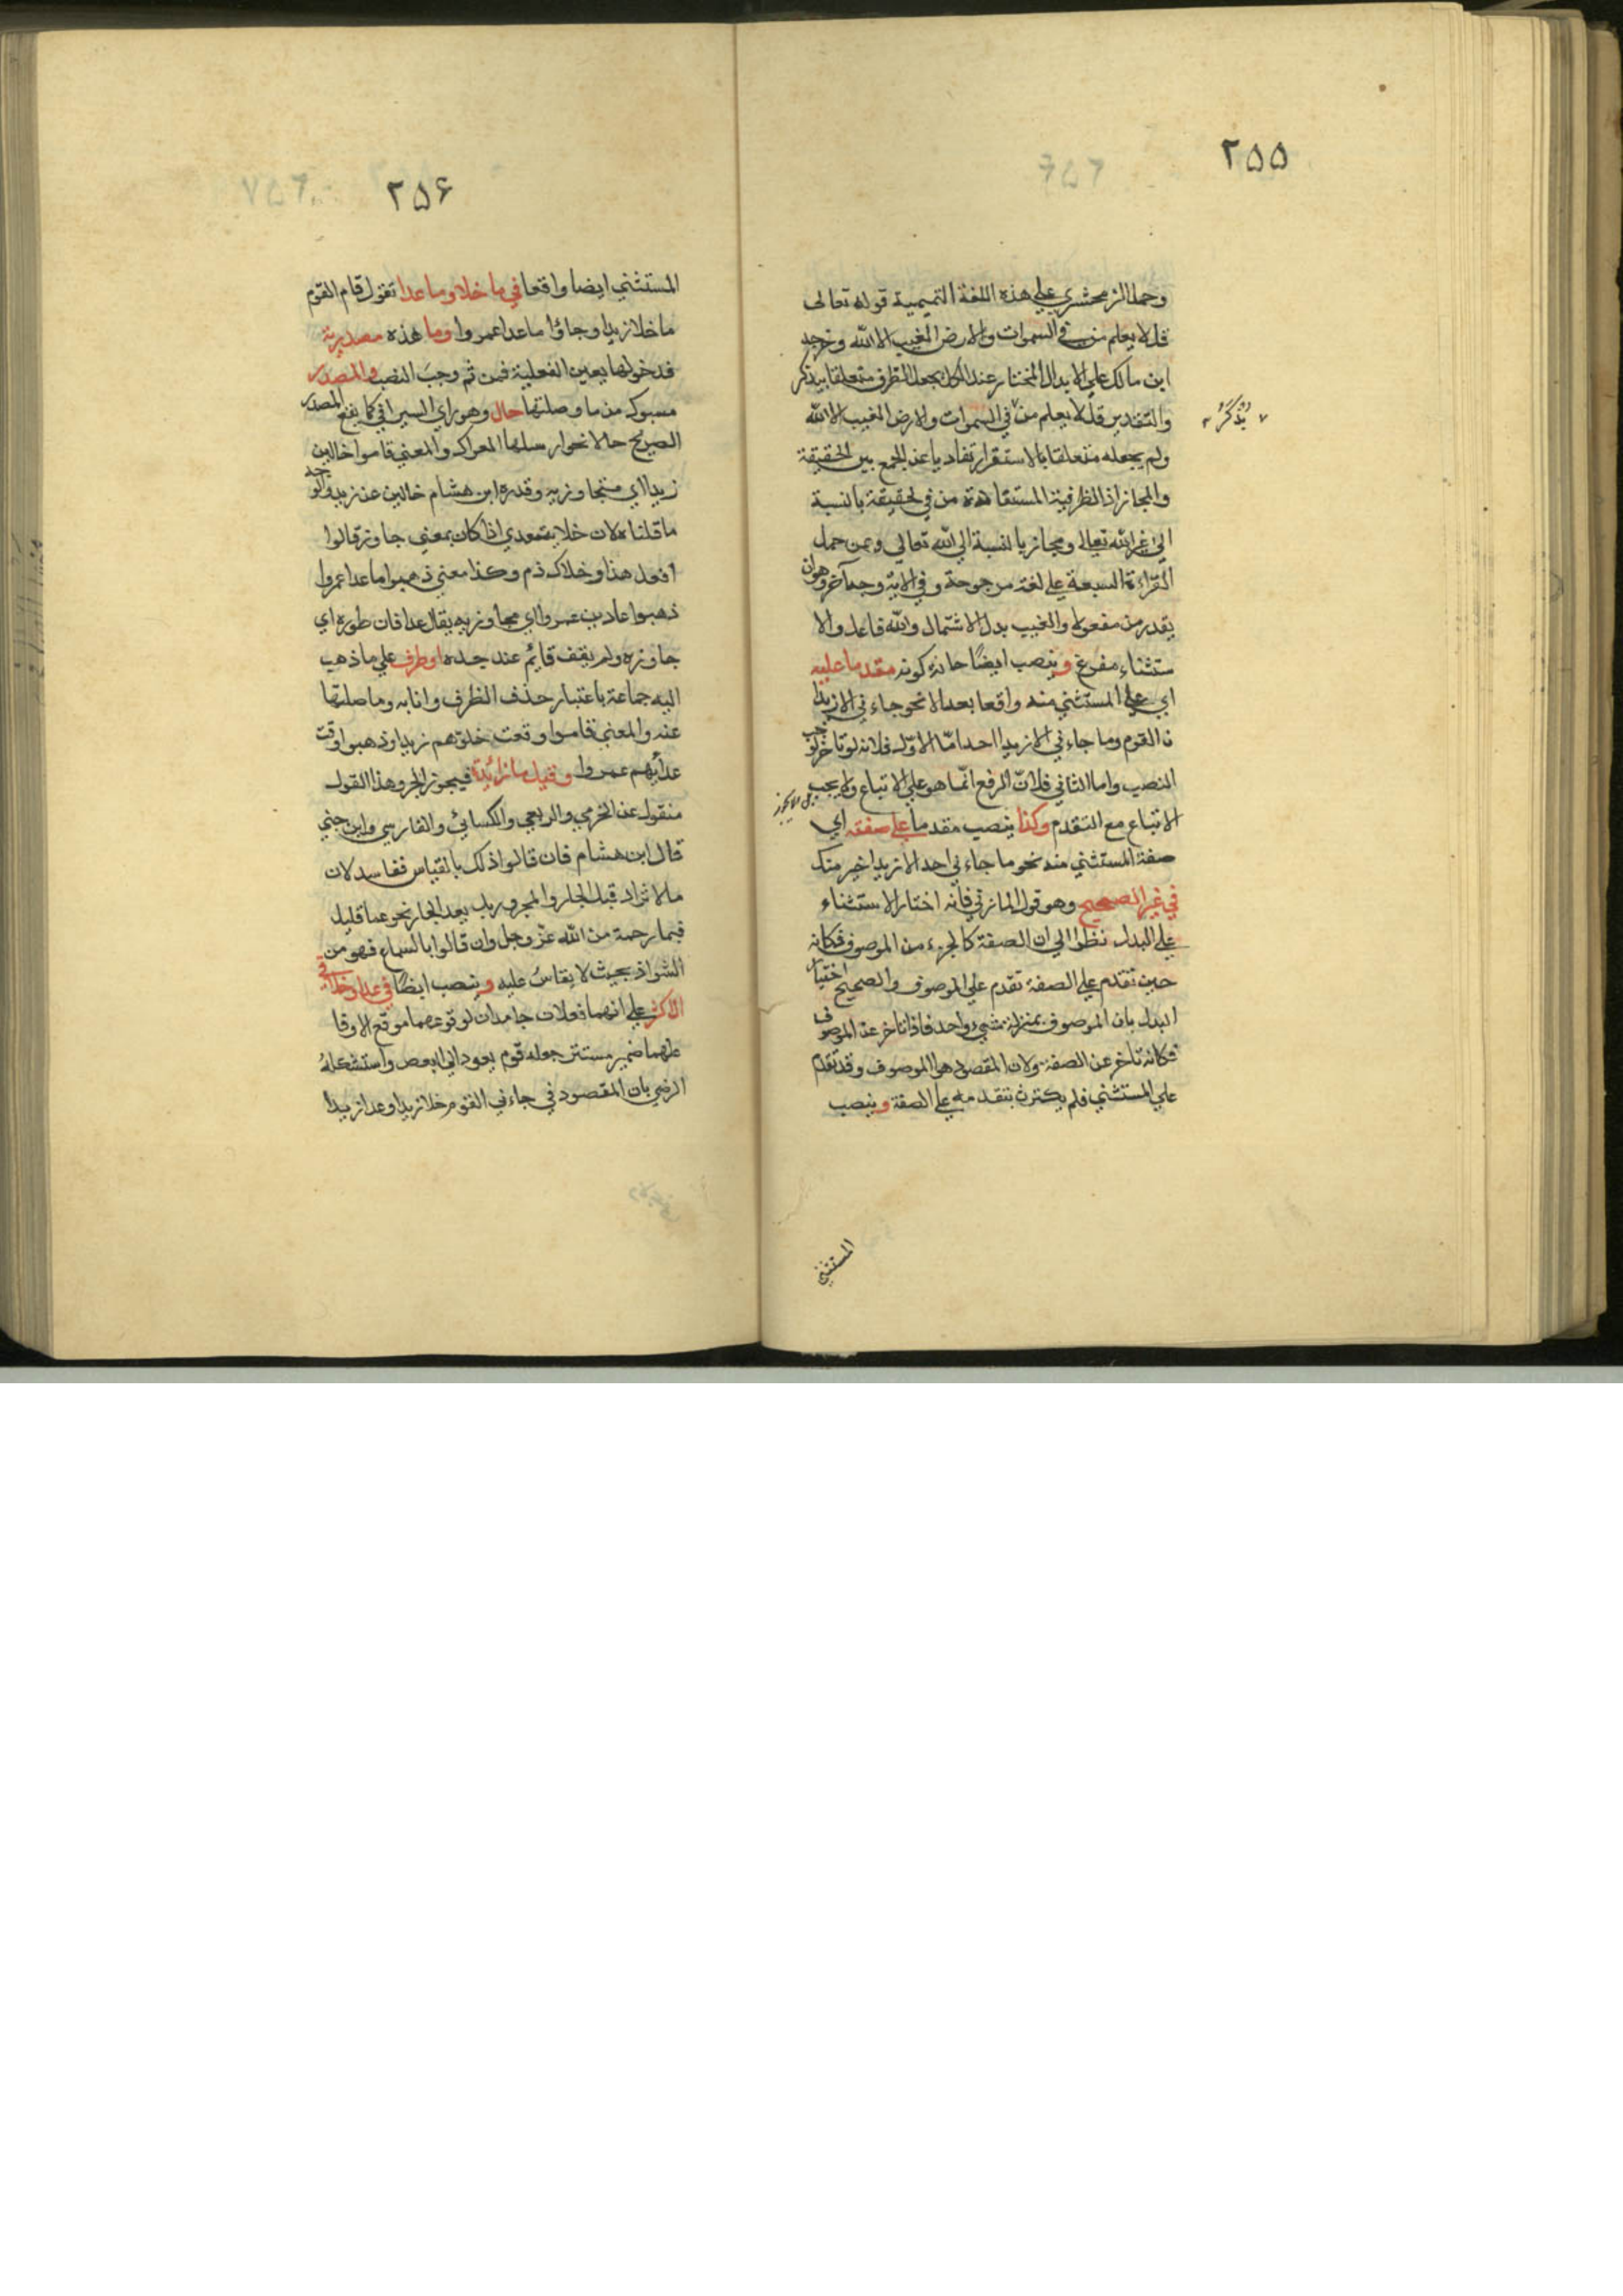 ٢٥٥
وحمل الزمخشري علي هذه اللغة التميمية قوله تعالى
قل لا يعلم من في السموات والارض الغيب الا الله وخرجه
ابن مالك علي الابدال المختار عند الكل بجعل الظرف متعلقا بيذكر
يُذكَرُ
والتقدير قل لا يعلم من في السموات والارض الغيب الا الله
ولم يجعله متعلقا بالاستقرار تفاديا عن الجمع بين الحقيقة
والمجاز اذ الظرفية المستفادة من في حقيقة بالنسبة
الي غير الله تعالي ومجاز بالنسبة الي الله تعالي ومن حمل
القراءة السبعة علي لغة مرجوحة وفي الاية وجه آخر وهو ان
يقدر من مفعولا والغيب بدل الاشتمال والله فاعل والا
ستثناء مفرغ وينصب ايضًا حانه كونه مقدما عليه
اي علي المستثني منه واقعا بعد الا نحو جاءني الا زيدا
ن القوم وما جاءني الا زيدا احد امّا الاوّل فلانه لو تاخر لوجب
النصب واما الثاني فلانّ الرفع انّما هو علي الاتباع ولا يجب
بل لا يجوز
الاتباع مع التقدم وكذا ينصب مقدما علي صفته اي
صفة المستثني منه نحو ما جاءني احد الا زيدا خير منك
في غير الصحيح وهو قول المازني فانّه اختار الاستثناء
علي البدل نظرا الي ان الصفة كالجزء من الموصوف فكانه
حين تقدم علي الصفة تقدم علي الموصوف والصحيح اختيار
البدل بان الموصوف بمنزلة شيء واحد فاذا تاخر عن الموصوف
فكانه تاخر عن الصفة ولان المقصود هو الموصوف وقد تقدم
علي المستثني فلم يكترث بتقدمه علي الصفة وينصب
المستثني
٢٥۶
المستثني ايضا واقعا في ما خلا وما عدا تقول قام القوم
ما خلا زيدا وجاؤا ما عدا عمروا وما هذه مصدرية
فدخولها يعين الفعلية فمن ثم وجب النصب والمصدر
مسبوك من ما وصلتها حال وهو راي السيرافي كما يقع المصدر
الصريح حالا نحو ارسلها العراك والمعني قاموا خالين
زيدا اي متجاوزيه وقدره ابن هشام خالين عن زيد والوجه
ما قلناه لان خلا يتعدي اذا كان بمعني جاوز قالوا
افعل هذا وخلاك ذم وكذا معني ذهبوا ما عدا عمروا
ذهبوا عادين عمروا اي مجاوزيه يقال عدا فان طوره اي
جاوزه ولم يقف قايم عند حده او ظرف علي ما ذهب
اليه جماعة باعتبار حذف الظرف وانابه وما صلتها
عنه والمعني قاموا وقت خلوّهم زيدا وذهبوا وقت
عدائهم عمروا وقيل ما زائدة فيجوز الجر وهذا القول
منقول عن الجرمي والربعي والكسائي والفارسي وابن جني
قال ابن هشام فان قالوا ذلك بالقياس ففاسد لان
ما لا تزاد قبل الجار والمجرور بل بعد الجار نحو عما قليل
فبما رحمة من الله عزّ وجل وان قالوا بالسماع فهو من
الشواذ بحيث لا يقاسُ عليه وينصب ايضًا في عدا وخلا في
الاكثر علي انهما فعلان جامدان لوقوعهما موقع الا وفا
علهما ضمير مستتر جعله قوم يعود الي البعض واستشكله
الرضي بان المقصود في جاءني القوم خلا زيدا وعدا زيدا